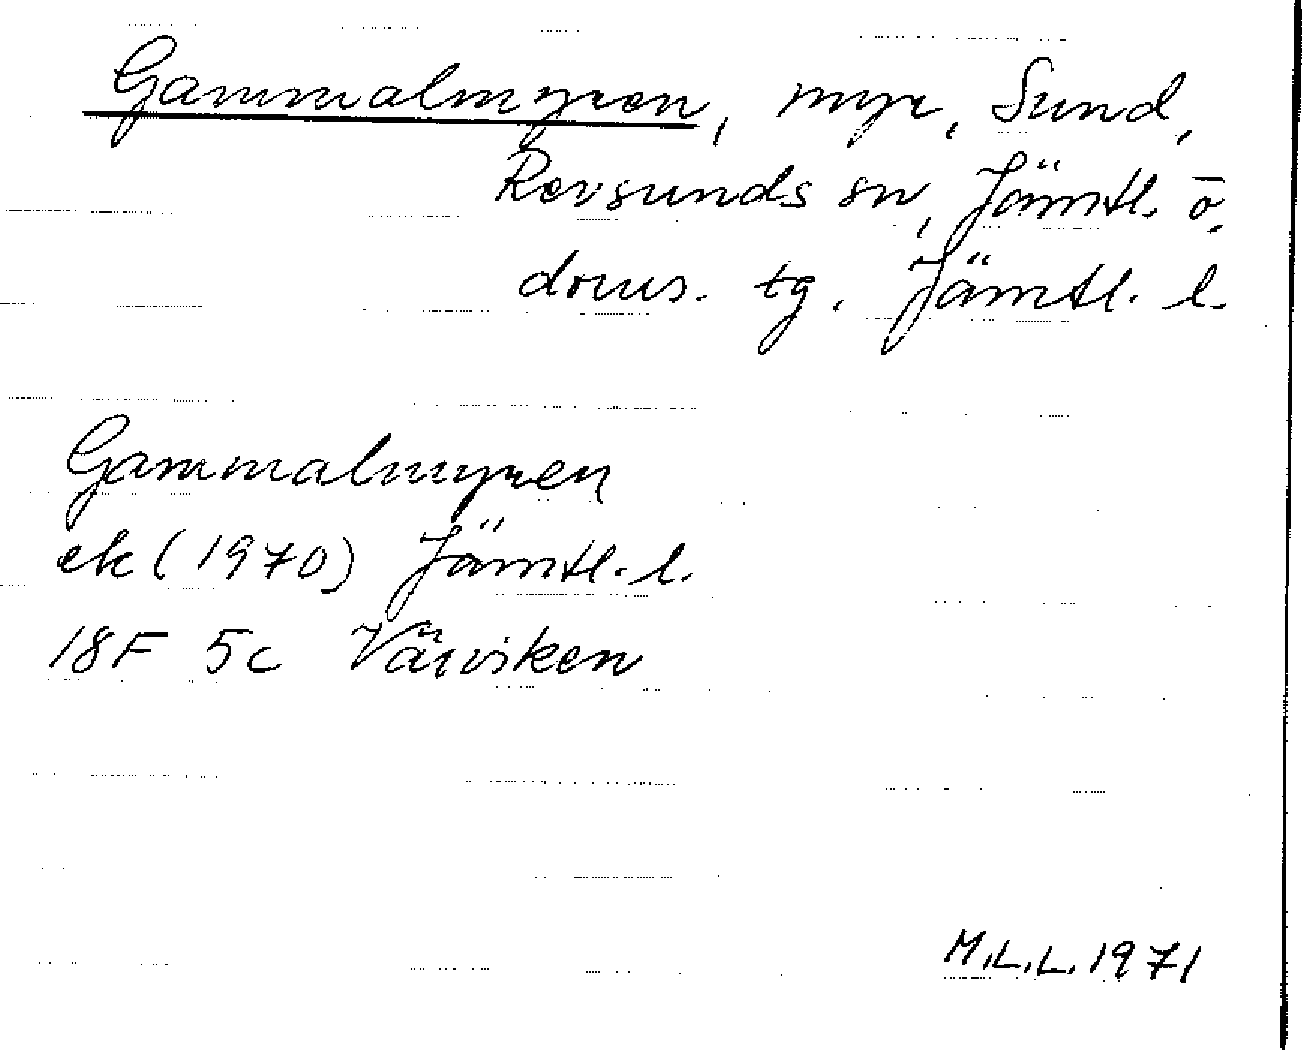 Gammalmyren, myr, Sund,
Revsunds sn, Jämtl. ö.
doms. tg. Jämtl. l.
Gammalmyren
ek (1970) Jämtl. l.
18F 5c Väviken
M.L.L. 1971